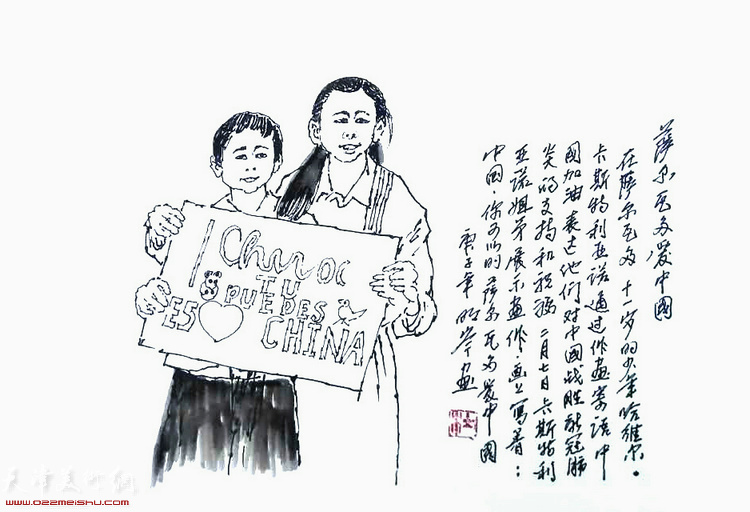 萨尔瓦多爱中国
在萨尔瓦多十一岁的少年哈维尔·
卡斯特利亚诺通过作画寄语中
国加油表达他们对中国战胜新冠肺
炎的支持和祝福二月七日卡斯特利
亚诺姐弟展示画作·画上写着:
中国·你可以的萨尔瓦多爱中国
庚子年
画
Chino
TU
PUEDES
ES
CHINA
天津美术网
www.022meishu.com